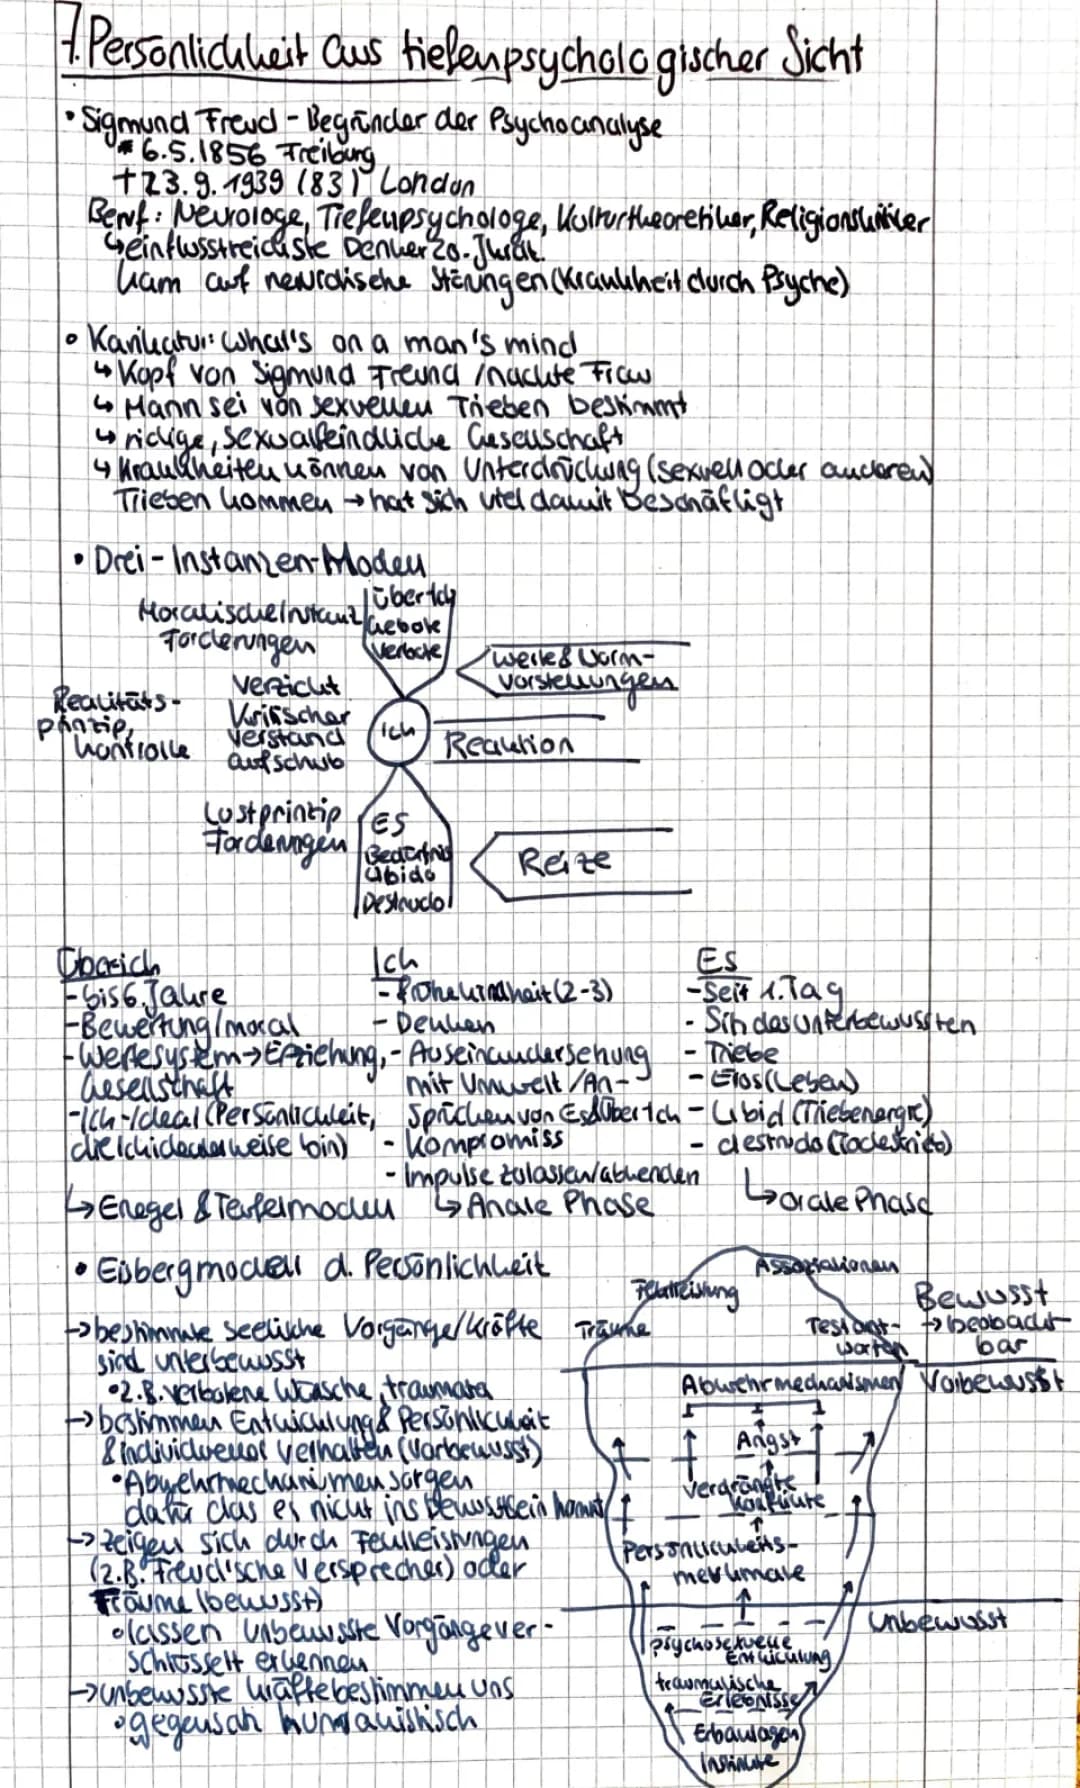 7. Persönlichkeit aus tiefenpsychologischer Sicht
• Sigmund Freud - Begründer der Psychoanalyse
* 6.5.1856 Freiburg
†23.9.1939 (83) London
Beruf: Neurologe, Tiefenpsychologe, Kulturtheoretiker, Religionskritiker
↳ einflusstreichste Denker 20. Jhrdt.
kam auf neurotische Störungen (Krankheit durch Psyche)
• Karikatur: What's on a man's mind
↳ Kopf von Sigmund Freund / nackte Frau
↳ Mann sei von sexuellen Trieben bestimmt
↳ sexualfeindliche Gesellschaft
↳ Krankheiten können von Unterdrückung (sexuell oder anderen)
Trieben kommen → hat sich viel damit beschäftigt
• Drei-Instanzen-Modell
Über Ich
Moralische Instanz
Gebote
Forderungen
Verbote
Werte & Norm-
vorstellungen
Realitäts-
prinzip,
Kontrolle
Verzicht
Kritischer
Verstand
Aufschub
Ich
Reaktion
Lustprinzip
Forderungen
ES
Bedürfnis
Libido
Destrudo
Reize
Überich
- bis 6. Jahre
- Bewertung/moral
- Wertesystem → Erziehung,
Gesellschaft
- Ich-Ideal (Persönlichkeit,
die ich idealerweise bin)
↳ Enegel & Teufelmodell
Ich
- frühe Kindheit (2-3)
- Denken
- Auseinandersetzung
mit Umwelt / An-
sprüchen von Es & Über Ich
- Kompromiss
- Impulse zulassen/abwenden
↳ Anale Phase
Es
- Seit 1. Tag
- Sitz des Unterbewussten
- Triebe
- Eros (Leben)
- Libid (Triebenergie)
- destrudo (Todestrieb)
↳ orale Phase
• Eisbergmodell d. Persönlichkeit
→ bestimmte seelische Vorgänge/Kräfte
sind unterbewusst
• z.B. verbotene Wünsche, traumata
→ bestimmen Entwicklung & Persönlichkeit
& individuelles Verhalten (Vorbewusst)
• Abwehrmechanismen sorgen
dafür das es nicht ins Bewusstsein kommt
→ zeigen sich durch Fehlleistungen
(z.B. Freud'sche Versprecher) oder
Träume (bewusst)
• lassen unbewusste Vorgänge ver-
schlüsselt erkennen
→ unbewusste Kräfte bestimmen uns
• gegensatz humanistisch
Assoziationen
Fehlleistung
Träume
Testant-
worten
Bewusst
→ beobacht-
bar
Abwehrmechanismen
Vorbewusst
Angst
verdrängte
Konflikte
Persönlichkeits-
merkmale
unbewusst
psychosexuelle
Entwicklung
traumatische
Erlebnisse
Erbanlagen
Instinkte